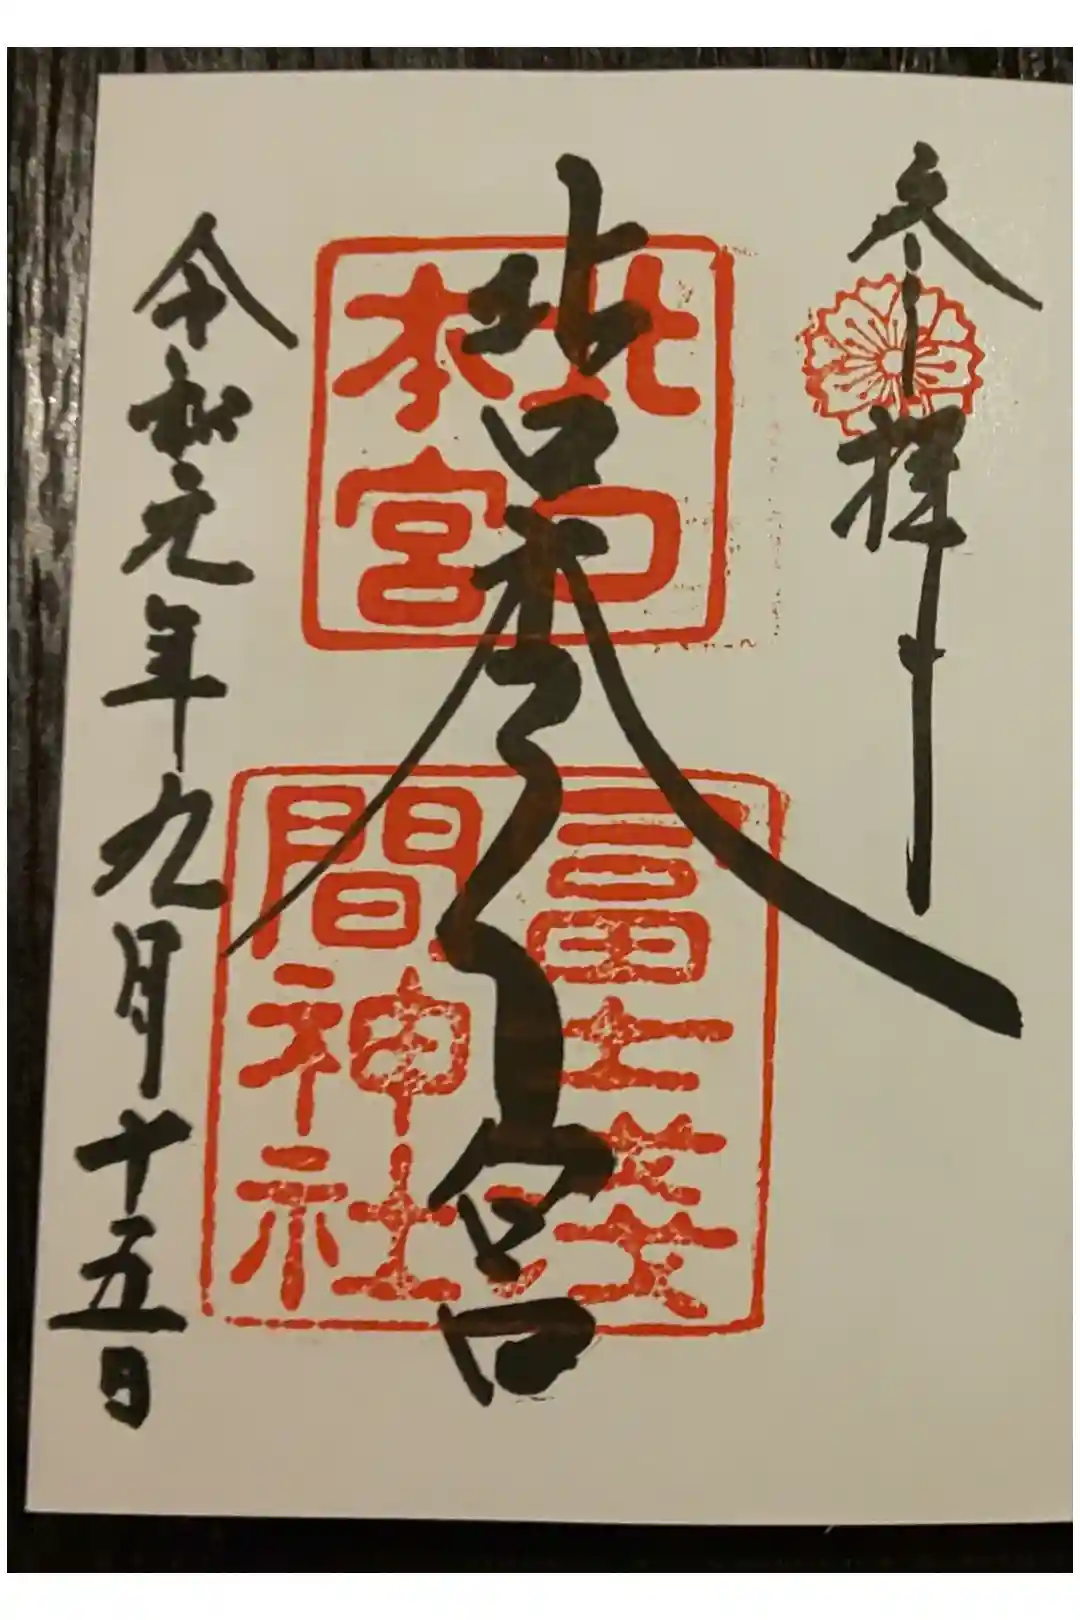 参拝
北口本宮
北口
本宮
冨士淺
間神社
令和元年九月十五日